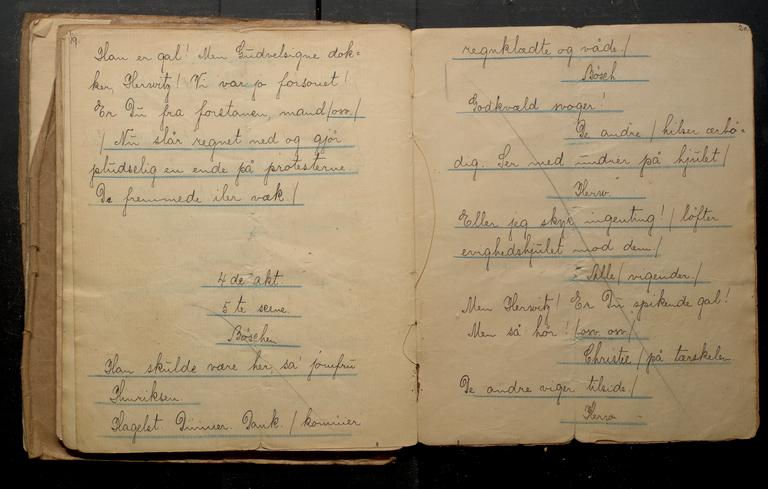 19.
Han er gal! Men Gudvelsigne dok=
ker, Herwitz! Vi var jo forsonet!
Er Du fra forstanen, mand/osv./
/ Nu slår regnet ned og gjør
pludselig en ende på protesterne.
De fremmede iler væk./
4 de akt.
5 te scene.
Böschen
Han skulde være her, sa' jomfru
Henriksen.
Hagelst. Dünner. Dank. / kommer
20.
regnklædte og våde./
Bösch
Godkvæld svoger!
De andre / hilser ærbø-
dig. Ser med undren på hjulet/
Herw.
Eller jeg skyr ingenting! / løfter
evighedshjulet mod dem./
Alle / vigender./
Men Herwitz! Er Du spikende gal!
Men så hør! / osv. osv./
Christie / på tærskelen.
De andre viger tilside./
Herw.